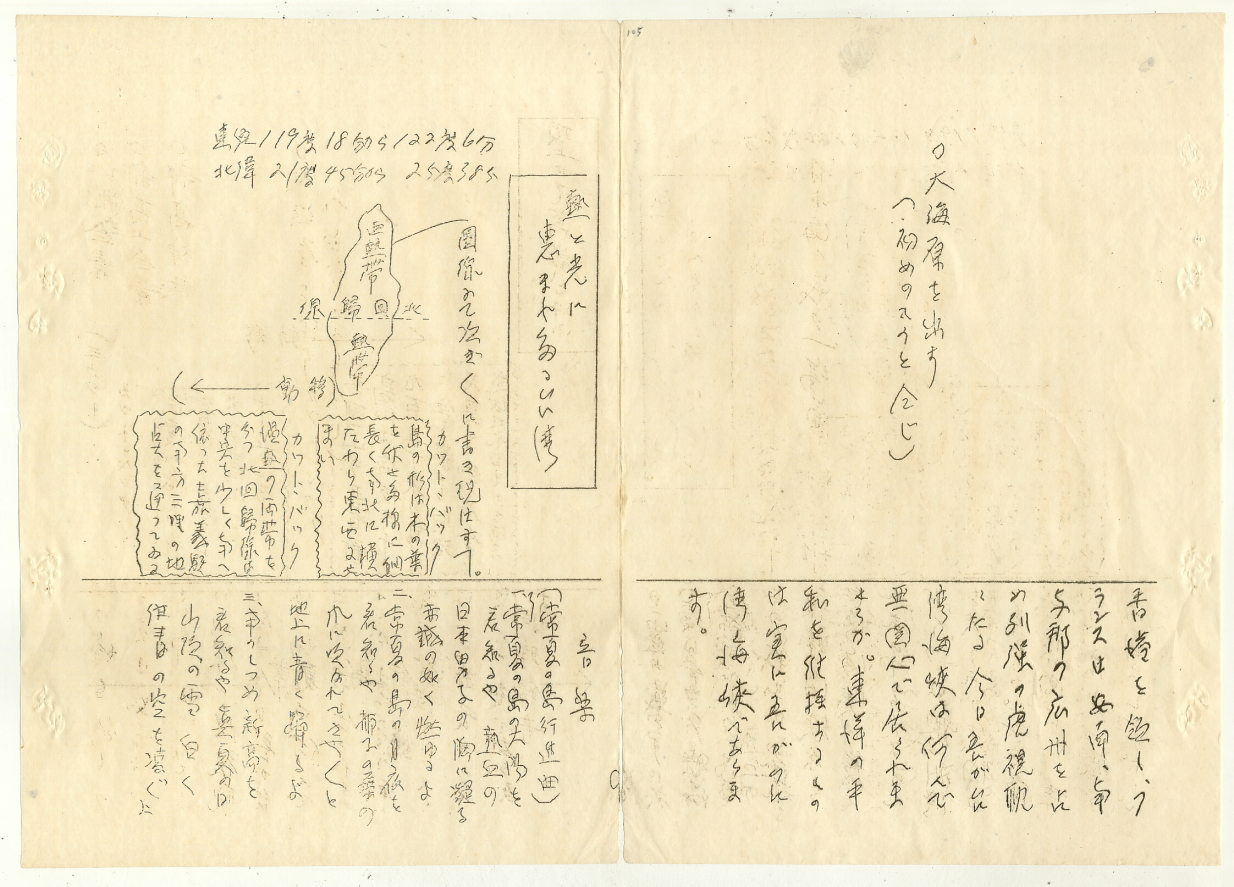 105
の大海原を出す
(初めのそうと仝じ)
香港を領し、フ
ランスは安南、南
支那の広州をに
め列強の虎視眈
々たる今日吾が台
湾海峡は何んで
無関心で居られま
せうか。東洋の平
和を維持するもの
は実に吾にがのに
湾海峡であらま
す。
熱と光に
恵まれたるたい湾
東経119度18分から122度6分
北緯21度45分から25度38分
亜熱帯
北回歸線
熱帯
圖線みて次ぎくに書き現はすて。
(移動)
カットバック
島の形は木の葉
を伏せた様に細
長く南北に横
たわり東西はせ
まい
カットバック
温熱の両帯を
分つ北回歸線は
中央を少しく南へ
依った嘉義驛
の南方三哩の地
点を通ってゐる
音樂
(常夏の島行進曲)
一、常夏の島の太陽を
君知るや 熱血の
日本男子の胸に凝る
赤誠の如く燃ゆるよ
二、常夏の島の月夜を
君知るや 椰子の葉の
風に吹かれてさやくと
地上に青く踊るよ
三、南のしづめ新高を
君知るや 真夏の日
山頂の雪白く
群青の空を凌ぐよ